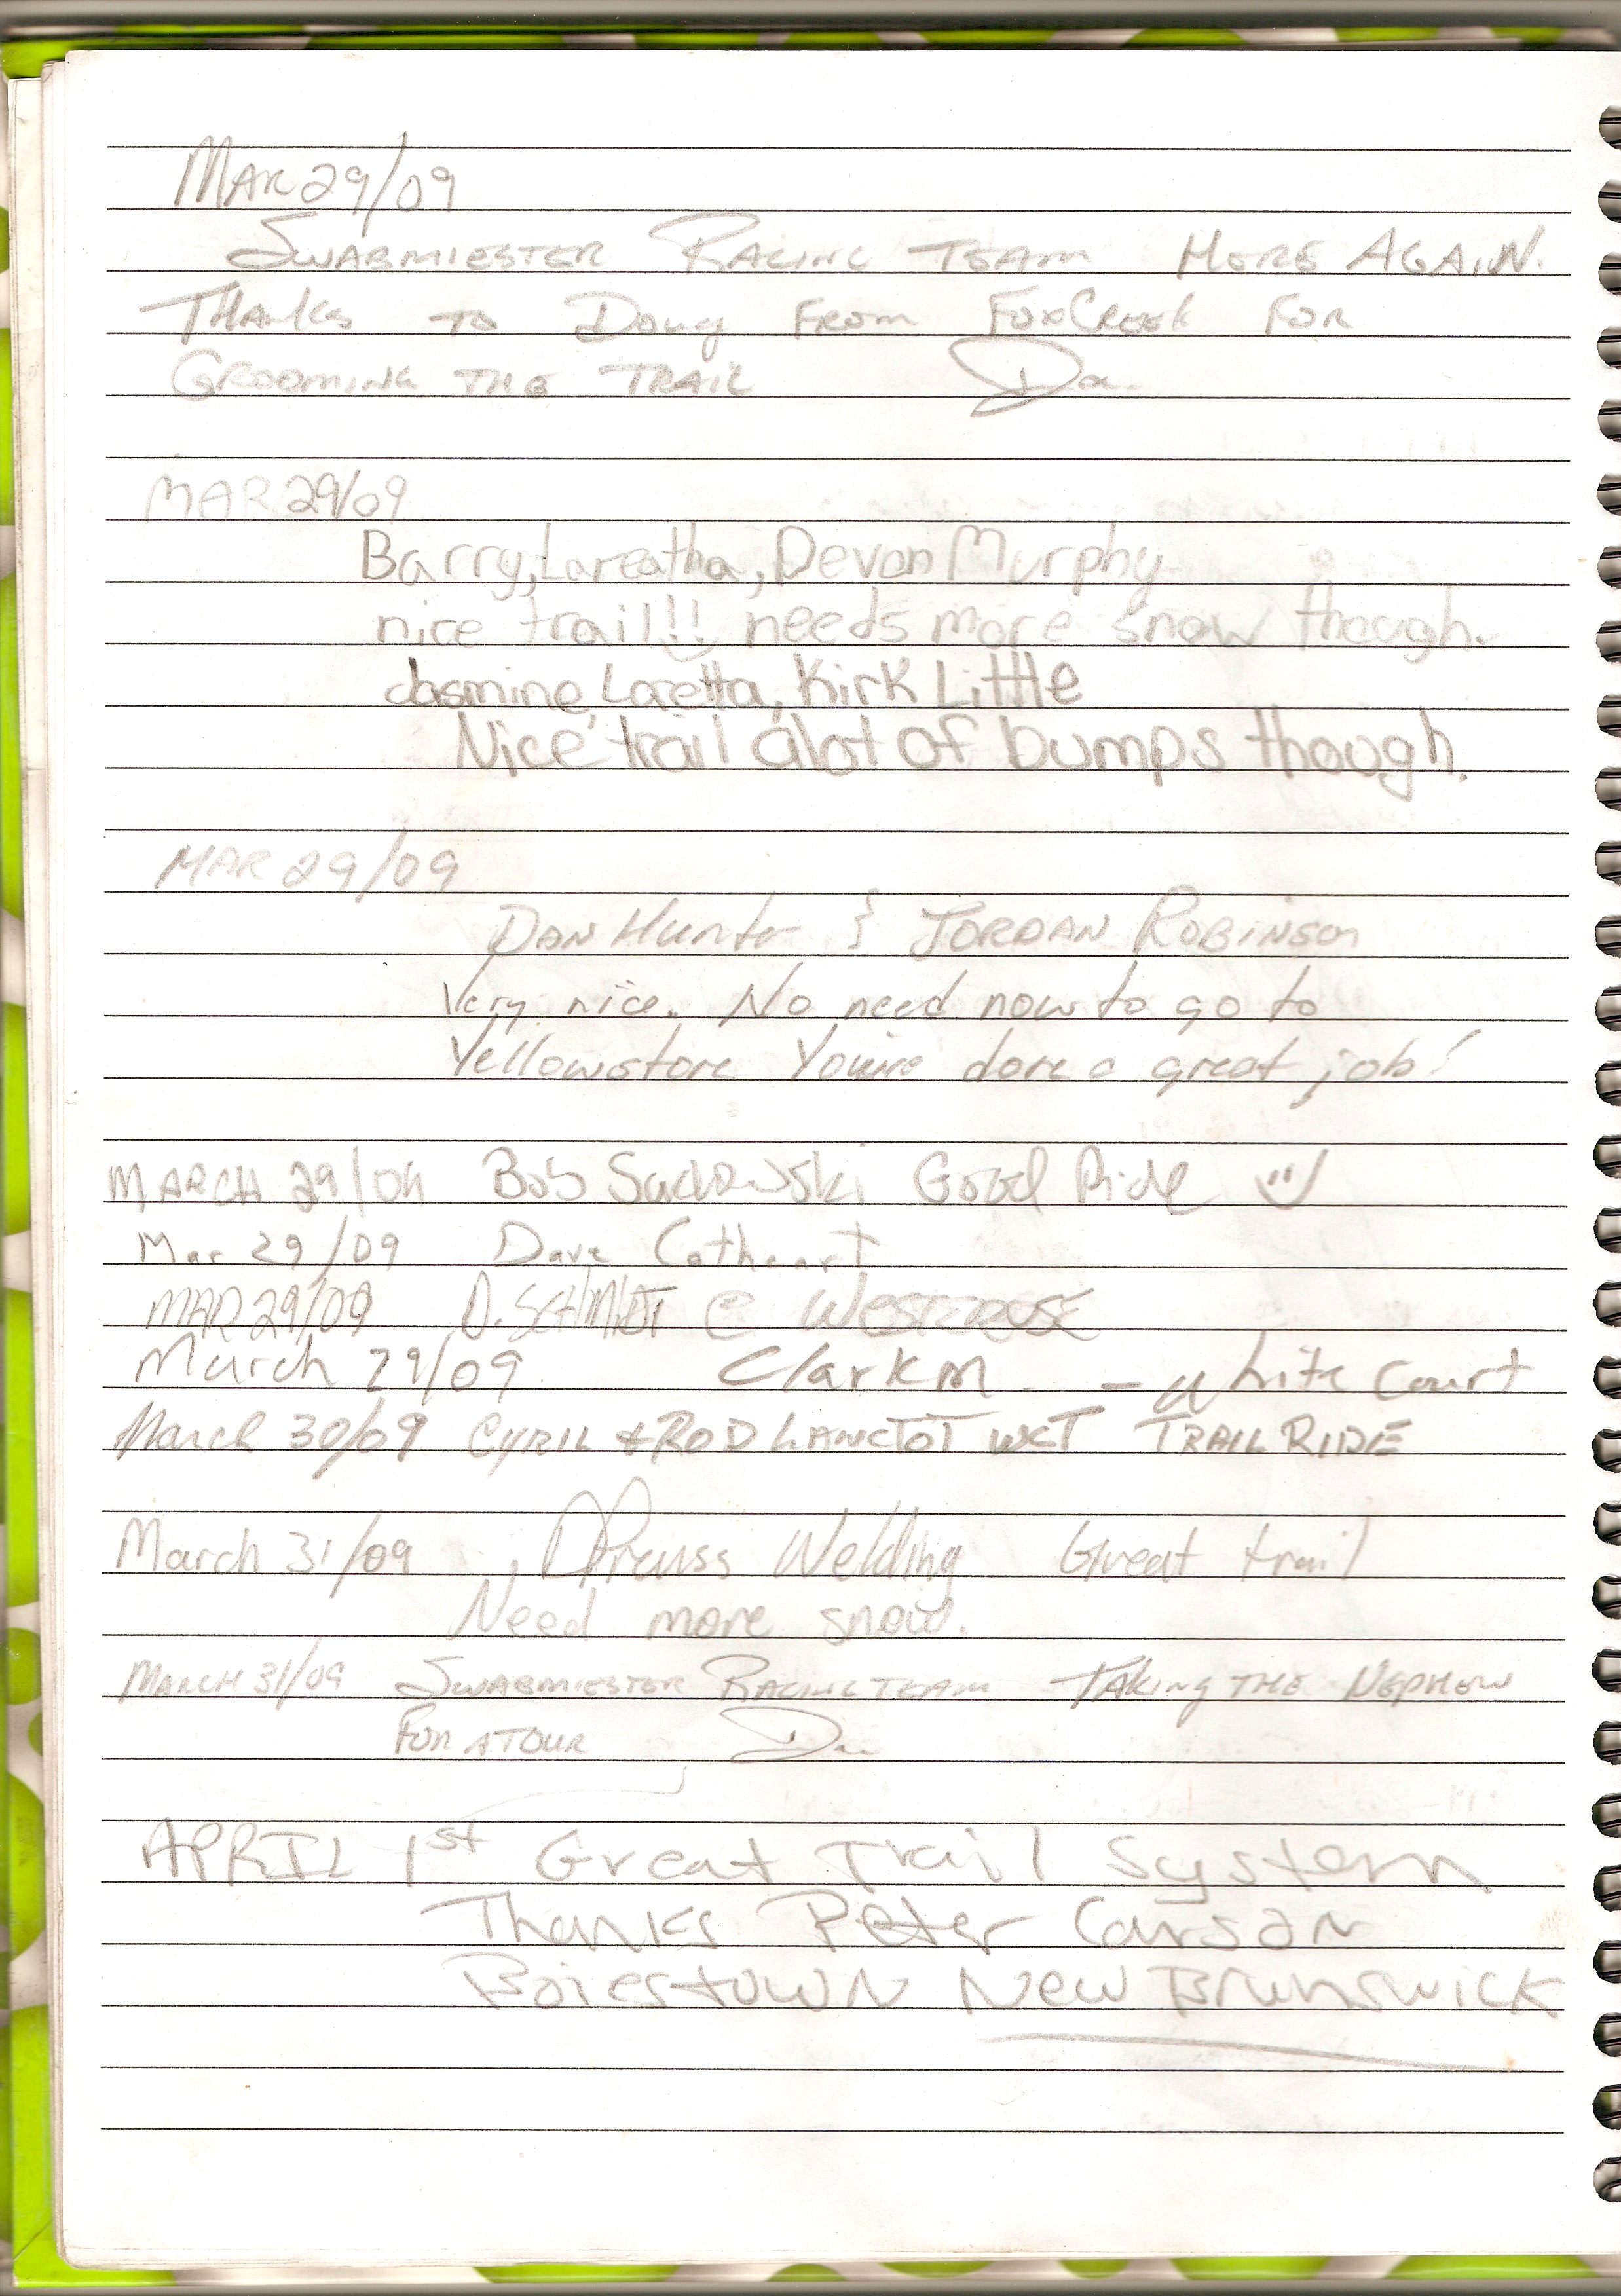 MAR 29/09
SWABMIESTER RACING TEAM HERE AGAIN.
THANKS TO Doug FROM FOXCREEK FOR
GROOMING THE TRAIL
MAR 29/09
Barry, Lareatha, Devon Murphy
nice trail!! needs more snow though.
Jasmine, Loretta, Kirk Little
Nice trail alot of bumps though.
MAR 29/09
DAN Hunter & JORDAN ROBINSON
Very nice. No need now to go to
Yellowstone You've done a great job!
MARCH 29/09 Bob Sadowski Good Ride
Mar 29/09 Dave Cathcart
MAR 29/09 D. SCHMIDT @ WESTEROSE
March 29/09. Clark M - white court
March 30/09 CYRIL & ROD LANCTOT WCT TRAIL RIDE
March 31/09 Preuss Welding Great trail
Need more snow.
MARCH 31/09 SWABMIESTER RACING TEAM TAKING THE NEPHEW
FOR A TOUR
APRIL 1st Great Trail System
Thanks Peter Carson
Boiestown New Brunswick